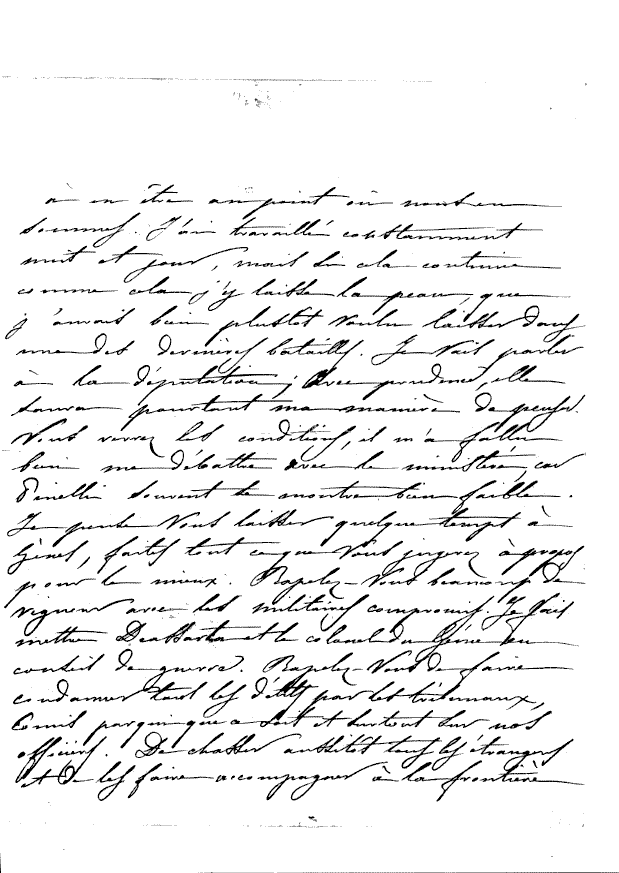 à en être au point où nous en
sommes. J'ai travaillé constamment
nuit et jour, mais si cela continue
comme cela j'y laisse la peau, que
j'aurais bien plustot voulu laisser dans
une des dernières batailles. Je vais parler
à la députation; avec prudence, elle
saura pourtant ma manière de penser.
Vous verrez les conditions, il m'a fallu
bien me débattre avec le ministère, car
Pinelli souvent se montre bien faible.
Je pense Vous laisser quelque temps à
Gènes, faites tout ce que Vous jugerez à propos
pour le mieux. Rapelez-Vous beaucoup de
vigueur avec les militaires compromis. Je fais
mettre et le colonel du Génie au
conseil de guerre. Rapelez-Vous de faire
condamner tous les délits par les tribunaux,
comis par qui que ce soit et surtout sur nos
officiers. De chasser aussitot tous les étrangers
et de les faire accompagner à la frontière